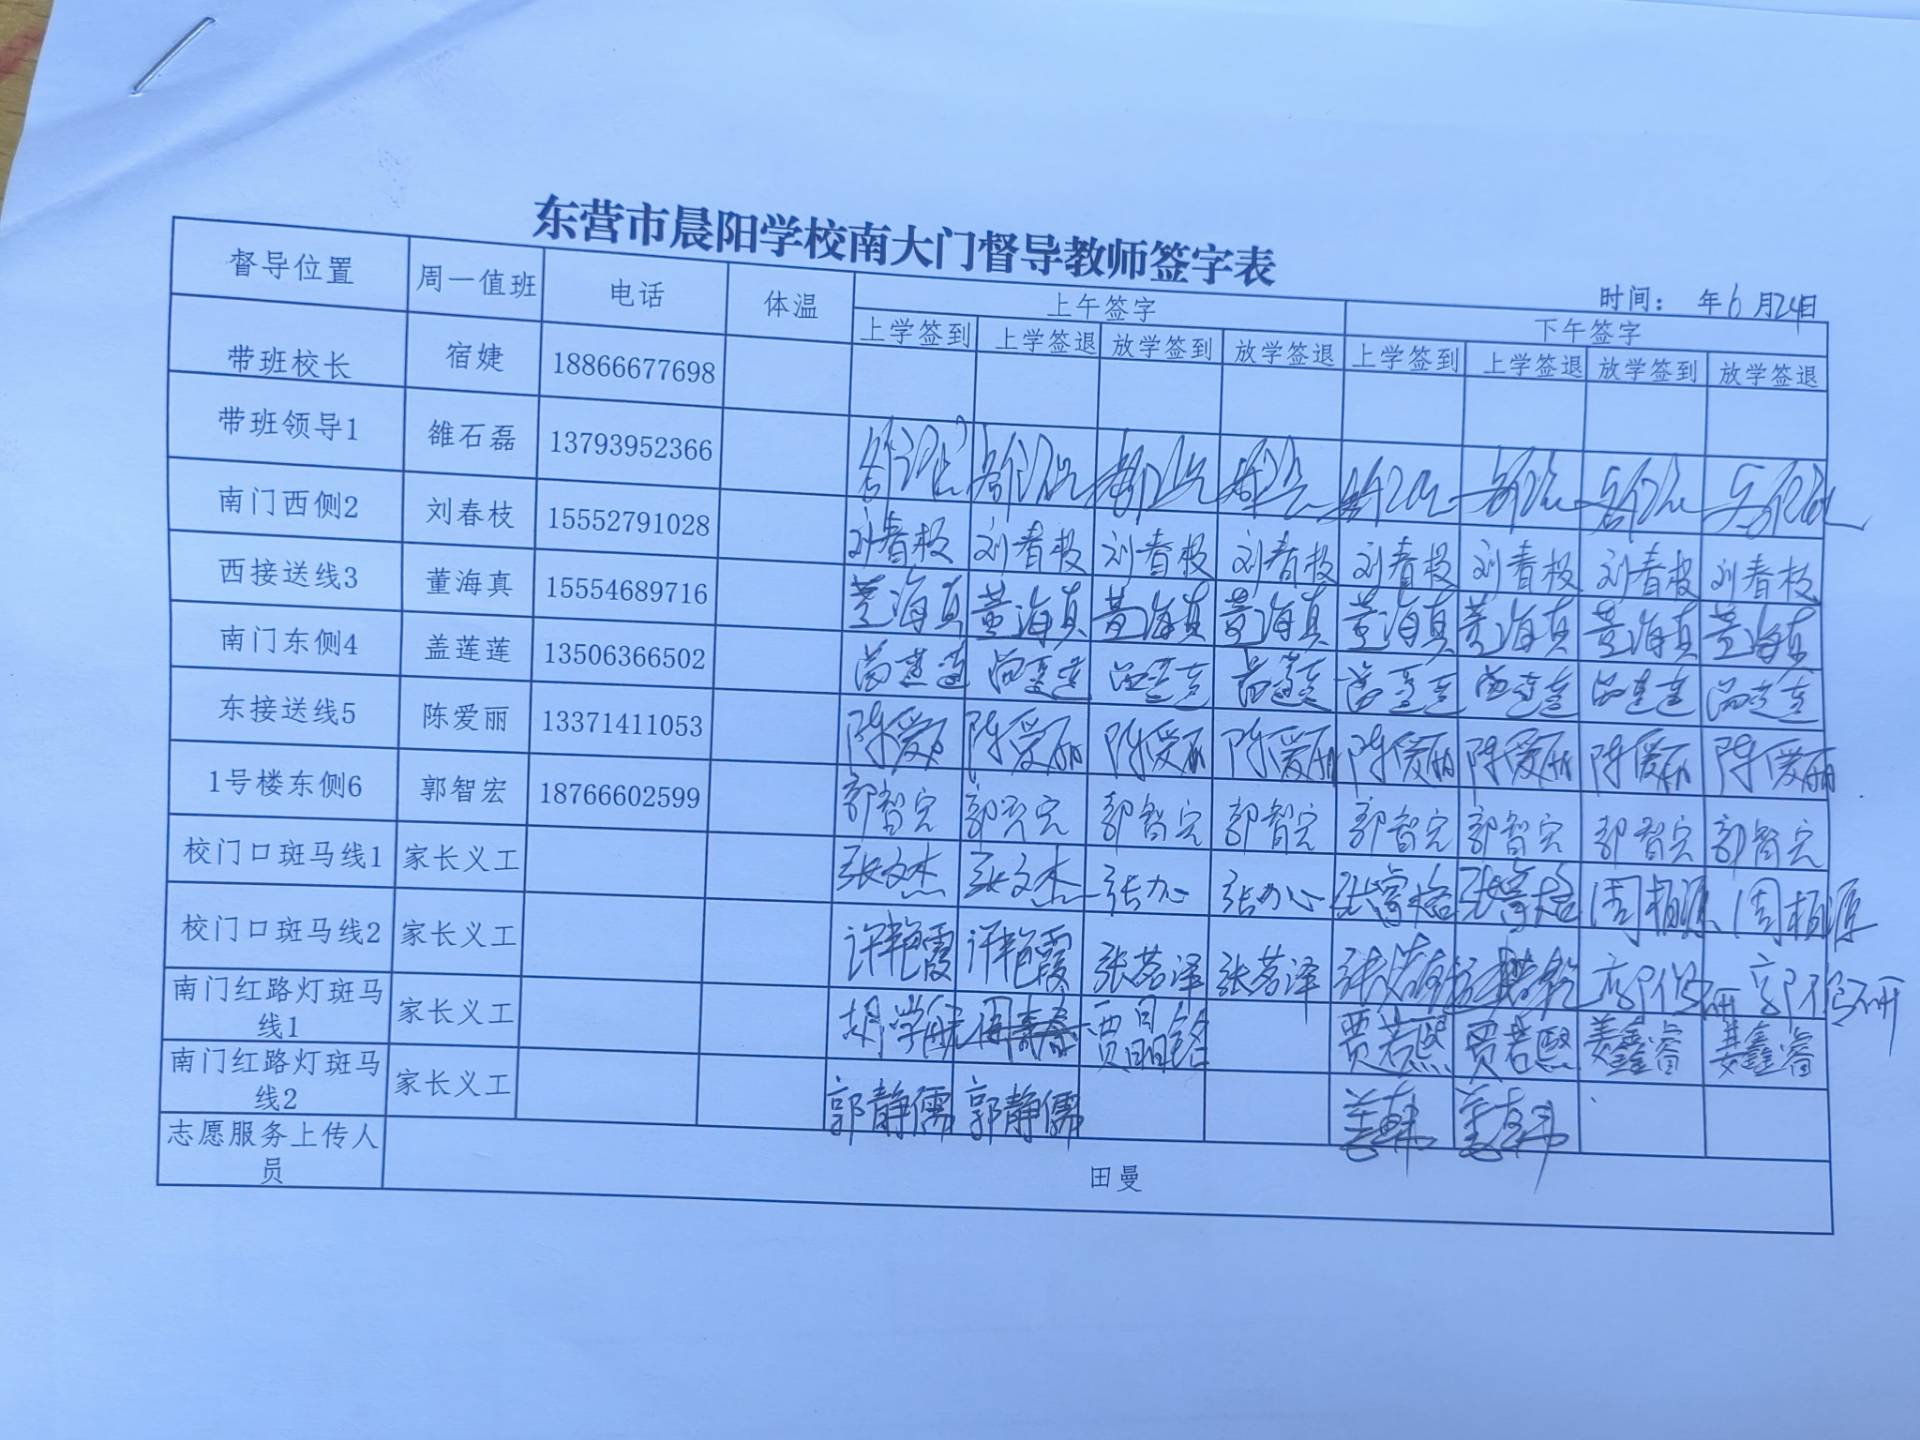 东营市晨阳学校南大门督导教师签字表
时间： 年6月24日
督导位置 周一值班 电话 体温 上午签字 下午签字
上学签到 上学签退 放学签到 放学签退 上学签到 上学签退 放学签到 放学签退
带班校长 宿婕 18866677698
带班领导1 雒石磊 13793952366
南门西侧2 刘春枝 15552791028 刘春枝 刘春枝 刘春枝 刘春枝 刘春枝 刘春枝 刘春枝 刘春枝
西接送线3 董海真 15554689716 董海真 董海真 董海真 董海真 董海真 董海真 董海真 董海真
南门东侧4 盖莲莲 13506366502 盖莲莲 盖莲莲 盖莲莲 盖莲莲 盖莲莲 盖莲莲 盖莲莲 盖莲莲
东接送线5 陈爱丽 13371411053 陈爱丽 陈爱丽 陈爱丽 陈爱丽 陈爱丽 陈爱丽 陈爱丽 陈爱丽
1号楼东侧6 郭智宏 18766602599 郭智宏 郭智宏 郭智宏 郭智宏 郭智宏 郭智宏 郭智宏 郭智宏
校门口斑马线1 家长义工 张文杰 张文杰 张办心 张办心 周柏源 周柏源
校门口斑马线2 家长义工 许艳霞 许艳霞 张茗泽 张茗泽
南门红路灯斑马线1 家长义工 贾晶铭 贾若熙 贾若熙 姜鑫睿 姜鑫睿
南门红路灯斑马线2 家长义工 郭静儒 郭静儒
志愿服务上传人员 田曼